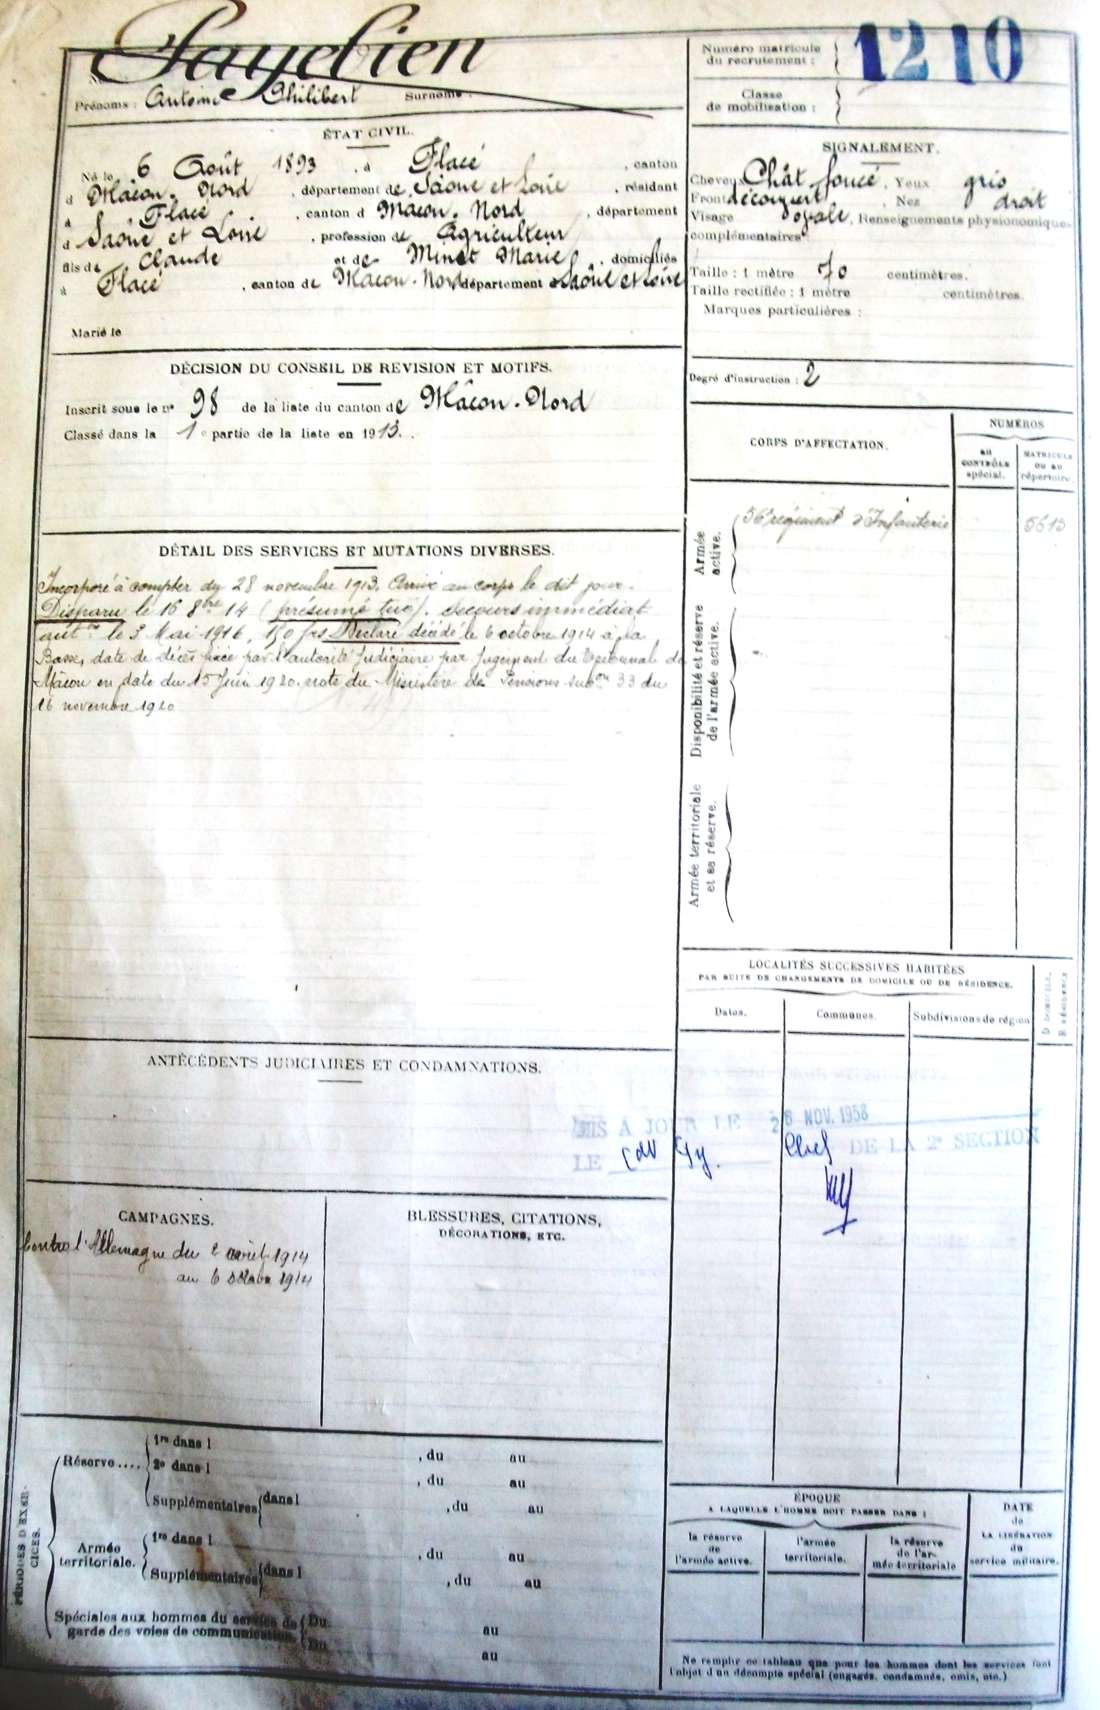 Payebien
Numéro matricule
du recrutement :
1210
Prénoms : Antoine Philibert Surnoms :
Classe
de mobilisation :
ÉTAT CIVIL.
Né le 6 Août 1893, à Flacé, canton
d Mâcon-Nord, département de Saône et Loire, résidant
à Flacé, canton d Mâcon-Nord, département
d Saône et Loire, profession de Agriculteur
fils de Claude et de Minot Marie, domiciliés
à Flacé, canton de Mâcon-Nord département Saône et Loire
Marié le
SIGNALEMENT.
Cheveux Chât foncé, Yeux gris
Front découvert, Nez droit
Visage ovale. Renseignements physionomiques
complémentaires :
Taille : 1 mètre 70 centimètres.
Taille rectifiée : 1 mètre centimètres.
Marques particulières :
Degré d'instruction : 2
DÉCISION DU CONSEIL DE REVISION ET MOTIFS.
Inscrit sous le n° 98 de la liste du canton de Mâcon-Nord
Classé dans la 1e partie de la liste en 1913.
CORPS D'AFFECTATION.
NUMÉROS
au
CONTRÔLE
spécial.
MATRICULE
ou au
répertoire.
Armée
active.
56e régiment d'Infanterie 5613
Disponibilité et réserve
de l'armée active.
Armée territoriale
et sa réserve.
DÉTAIL DES SERVICES ET MUTATIONS DIVERSES.
Incorporé à compter du 28 novembre 1913. Arrivé au corps le dit jour.
Disparu le 16 8bre 14 (présumé tué). secours immédiat
le 3 Mai 1916, 150 frs Déclaré décédé le 6 octobre 1914 à la
date de décès fixée par l'autorité judiciaire par Jugement du Tribunal de
Mâcon en date du 15 Juin 1920. note du Ministère des Pensions 33 du
16 novembre 1920
LOCALITÉS SUCCESSIVES HABITÉES
PAR SUITE DE CHANGEMENTS DE DOMICILE OU DE RÉSIDENCE.
Dates.
Communes.
Subdivisions de région
D. Domicile.
R. Résidence
ANTÉCÉDENTS JUDICIAIRES ET CONDAMNATIONS.
MIS A JOUR LE 26 NOV. 1958
LE Chef DE LA 2e SECTION
CAMPAGNES.
Contre l'Allemagne du 2 août 1914
au 6 octobre 1914
BLESSURES, CITATIONS,
DÉCORATIONS, ETC.
PÉRIODES D'EXER-
CICES.
Réserve ....
1re dans l , du au
2e dans l , du au
Supplémentaires dans l , du au
Armée
territoriale.
1re dans l , du au
Supplémentaires dans l , du au
Spéciales aux hommes du service de
garde des voies de communication.
Du au
Du au
ÉPOQUE
A LAQUELLE L'HOMME DOIT PASSER DANS :
la réserve
de
l'armée active.
l'armée
territoriale.
la réserve
de l'ar-
mée territoriale
DATE
de
LA LIBÉRATION
du
service militaire.
Ne remplir ce tableau que pour les hommes dont les services font
l'objet d'un décompte spécial (engagés, condamnés, omis, etc.)